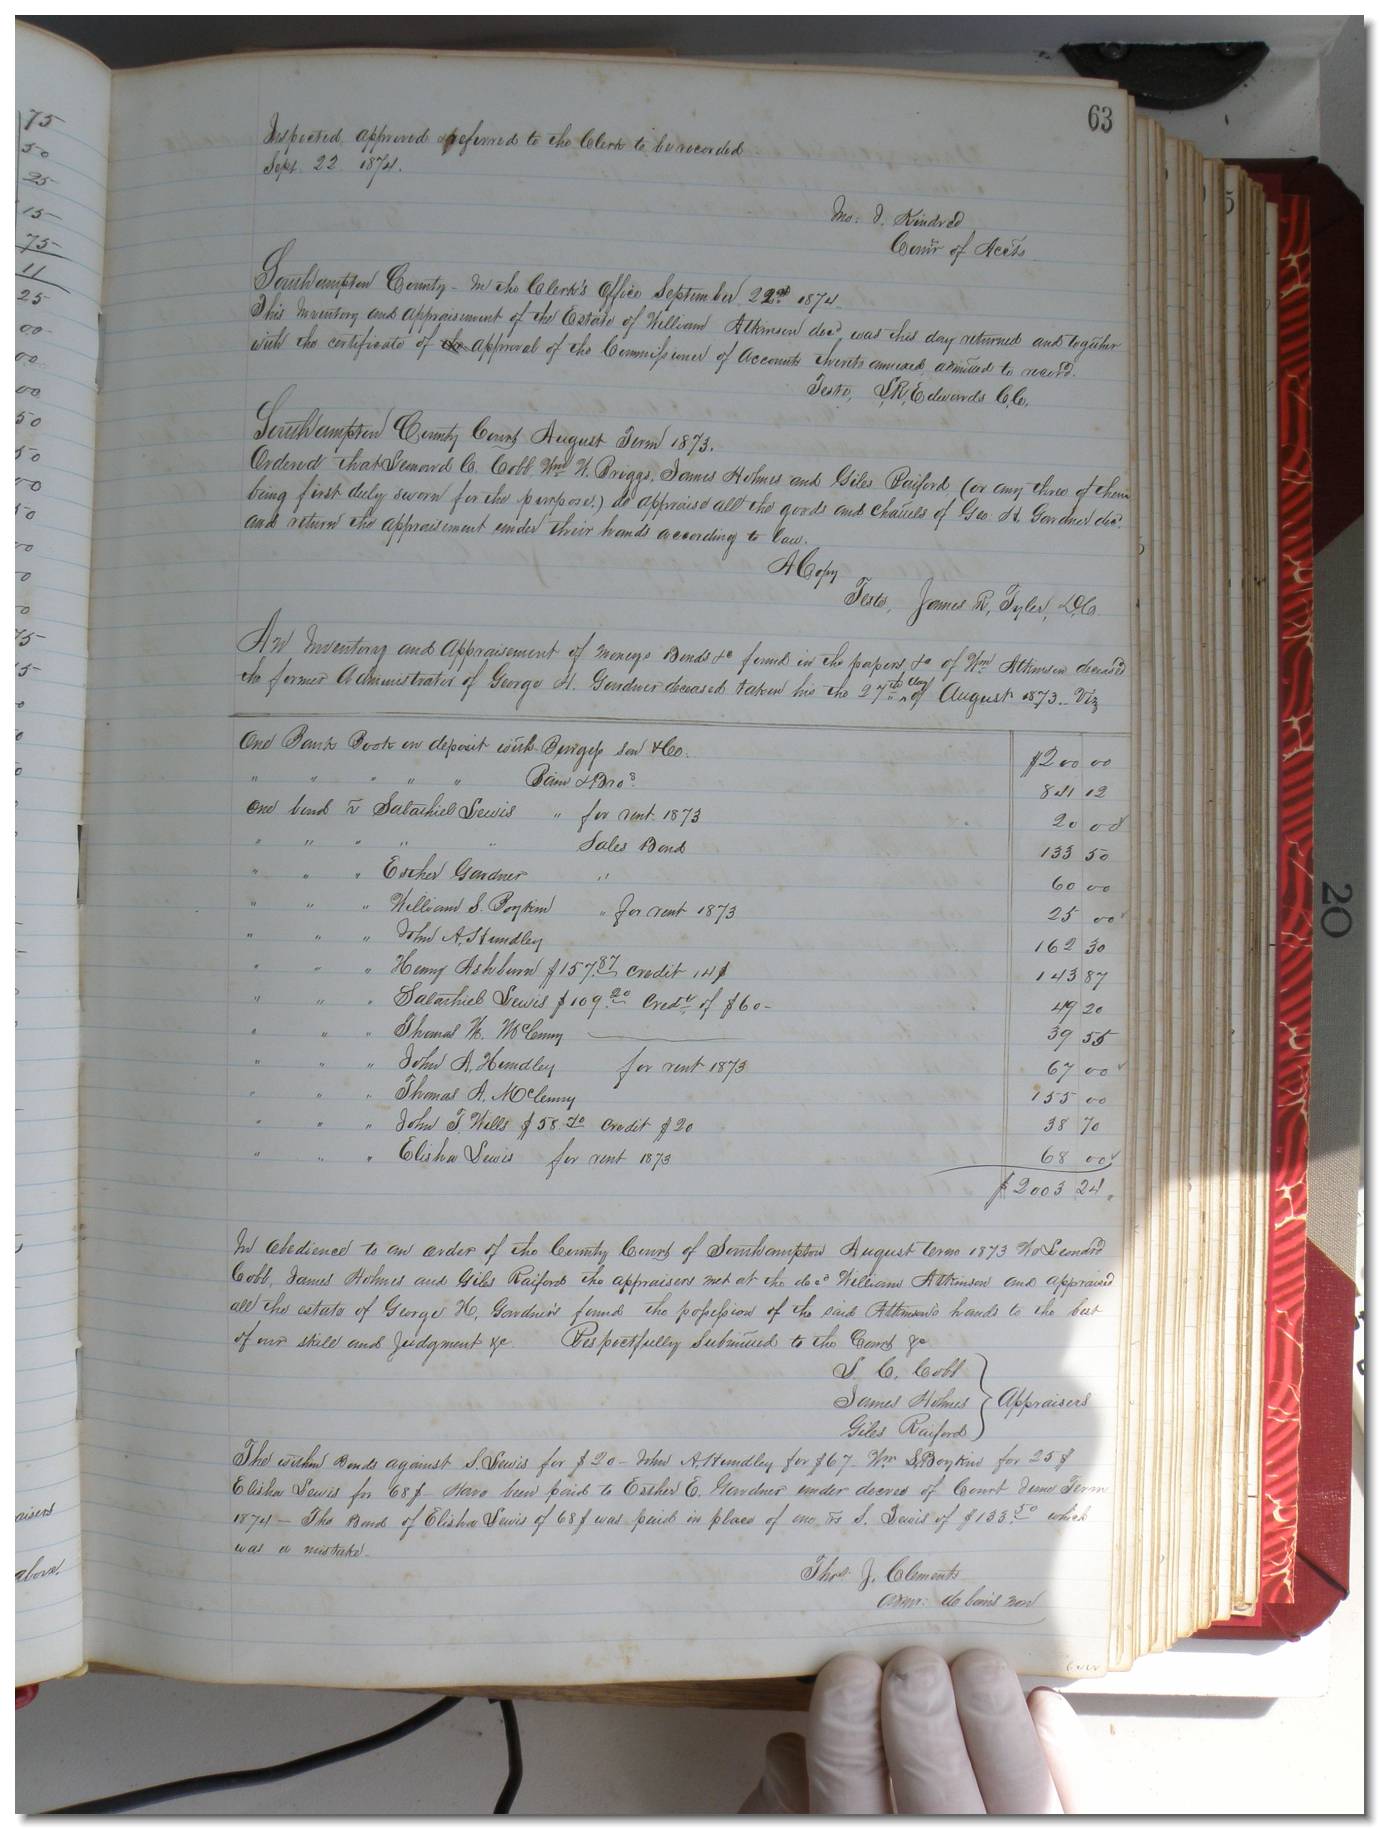 75
50
25
15
75
11
25
00
00
00
50
50
00
50
00
0
00
75
15
aisers
above.
63
Inspected, approved & referred to the Clerk to be recorded
Sept. 22 1874.
Jno: J. Kindred
Comr of Accts
Southampton County - In the Clerk's Office September 22nd 1874
This Inventory and appraisement of the Estate of William Atkinson decd was this day returned and together
with the certificate of the approval of the Commissioner of Accounts thereto annexed, admitted to record.
Teste, L.R. Edwards C.C.
Southampton County Court August Term 1873.
Ordered that Lemond C. Cobb, Wm W. Briggs, James Holmes and Giles Raiford, (or any three of them
being first duly sworn for the purpose,) do appraise all the goods and chattels of Geo. H. Gardner decd.
and return the appraisement under their hands according to law.
A Copy
Teste, James R. Tyler, D.C.
An Inventory and Appraisement of moneys Bonds &c found in the papers, &c of Wm Atkinson deceased
the former Administrator of George H. Gardner deceased taken his the 27th day of August 1873.. Viz
One Bank Book on deposit with Burgess son & Co. $200 00
" " " " " Bain & Bros. 841 12
One bond vs Salathiel Lewis " for rent 1873 20 00
" " " " " Sales Bond 133 50
" " " Esther Gardner " 60 00
" " " William S. Boykin " for rent 1873 25 00
" " " John A. Hundley 162 30
" " " Henry Ashburn $157.87 credit 14$ 143 87
" " " Salathiel Lewis $109.20 Credt of $60- 49 20
" " " Thomas W. McClenny 39 55
" " " John A. Hundley for rent 1873 67 00
" " " Thomas A. McClenny 155 00
" " " John T. Wills $58.70 credit $20 38 70
" " " Elisha Lewis for rent 1873 68 00
$2003 24
In obedience to an order of the County Court of Southampton August term 1873 We Leonard
Cobb, James Holmes and Giles Raiford the appraisers met at the decd William Atkinson and appraised
all the estate of George H. Gardner's found the possession of the said Atkinson's hands to the best
of our skill and Judgment &c. Respectfully Submitted to the Court &c
L. C. Cobb
James Holmes } Appraisers
Giles Raiford
The within Bonds against S. Lewis for $20 - John A. Hundley for $67 - Wm S. Boykin for 25$
Elisha Lewis for 68$ - Have been paid to Esther E. Gardner under decree of Court June Term
1874 - The Bond of Elisha Lewis of 68$ was paid in place of one vs S. Lewis of $133.50 which
was a mistake.
Thos. J. Clements
Admr. de bonis non
20